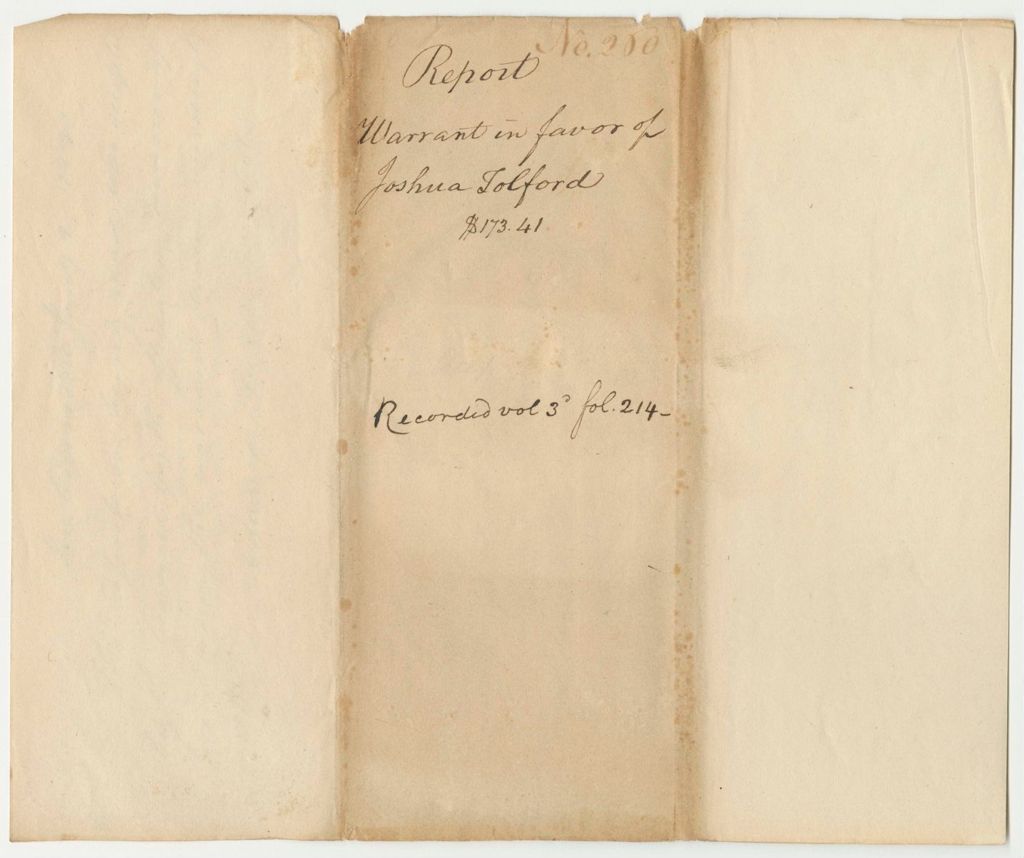 No. 260
Report
Warrant in favor of
Joshua Tolford
$173.41
Recorded vol 3d fol. 214-